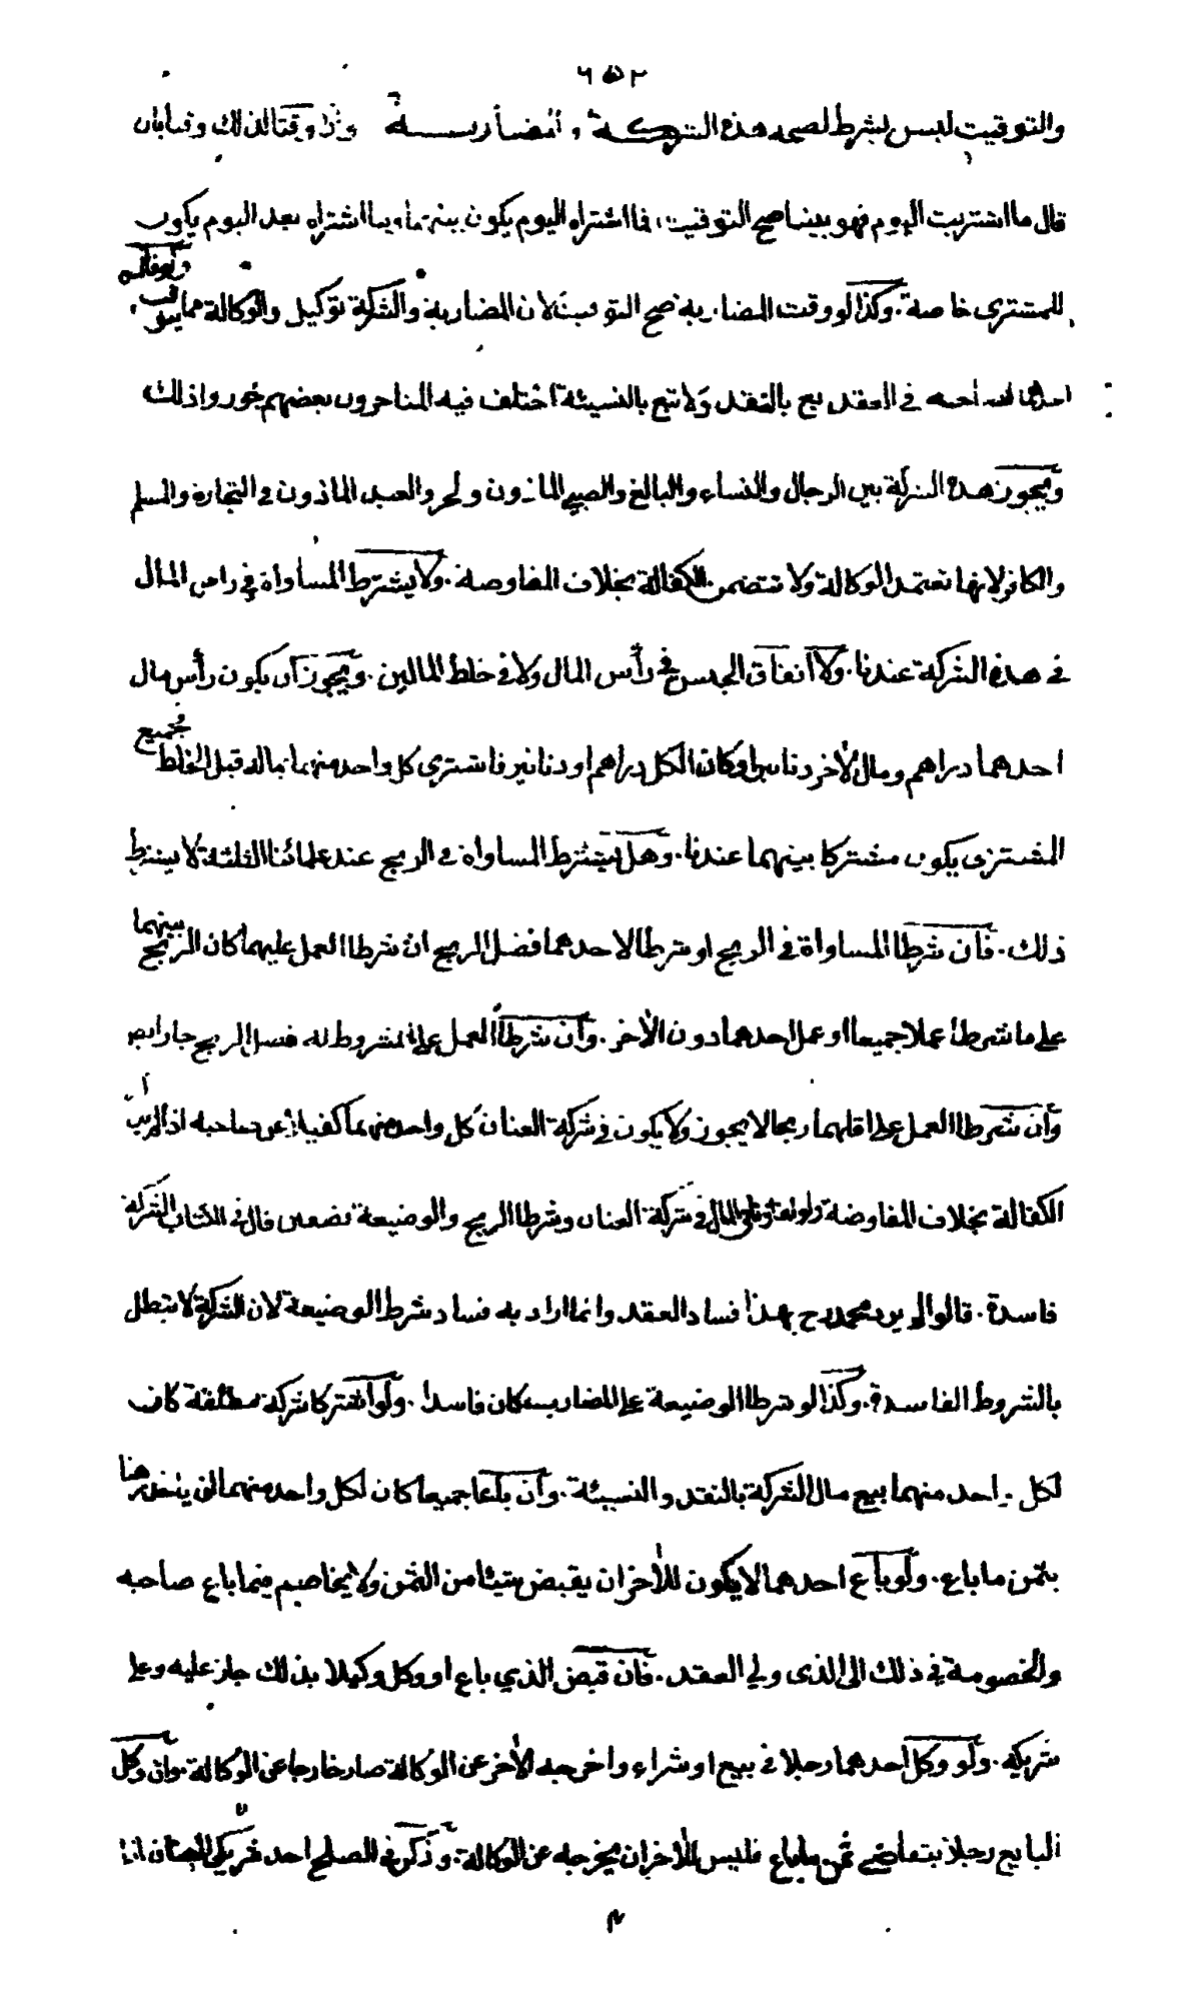 ٦٥٢
والتوقيت ليس بشرط لصحة هذه الشركة و المضاربة وان وقتا لذلك وقتا بان
قال ما اشتريت اليوم فهو بيننا صح التوقيت، فما اشتراه اليوم يكون بينهما وما اشتراه بعد اليوم يكون
للمشترى خاصة. وكذا لو وقت المضاربة صح التوقيت لان المضاربة والشركة توكيل والوكالة مما يتوقت
احدهما لصاحبه فى العقد بع بالنقد ولا تبع بالنسيئة اختلف فيه المتاخرون بعضهم جوزوا ذلك
ويجوز هذه الشركة بين الرجال والنساء والبالغ والصبى الماذون والحر والعبد الماذون فى التجارة والمسلم
والكافر لانها تعتمد الوكالة ولا تتضمن الكفالة بخلاف المفاوضة. ولا يشترط المساواة فى راس المال
فى هذه الشركة عندنا. ولا اتفاق الجنس فى رأس المال ولا فى خلط المالين. ويجوز ان يكون رأس مال
احدهما دراهم ومال الأخر دنانير او كان الكل دراهم او دنانير فاشترى كل واحد منهما بماله قبل الخلط فجميع
المشترى يكون مشتركا بينهما عندنا. وهل يشترط المساواة فى الربح عند علمائنا الثلثة لا يشترط
ذلك. فان شرطا المساواة فى الربح او شرطا لاحدهما فضل الربح ان شرطا العمل عليهما كان الربح بينهما
على ما شرطا عملا جميعا او عمل احدهما دون الأخر. وان شرطا العمل على المشروط له فضل الربح جاز ايضا
وان شرطا العمل على اقلهما ربحا لا يجوز ولا يكون فى شركة العنان كل واحد منهما كفيلا عن صاحبه اذا لم
الكفالة بخلاف المفاوضة فى شركة العنان وشرطا الربح والوضيعة نصفين قال فى الكتاب الشركة
فاسدة. قالوا لم يرد محمد رح بهذا فساد العقد وانما اراد به فساد شرط الوضيعة لان الشركة لا تبطل
بالشروط الفاسدة. وكذا لو شرطا الوضيعة على المضارب كان فاسدا. ولو اشتركا شركة مطلقة كان
لكل واحد منهما بيع مال الشركة بالنقد والنسيئة. وان باعا جميعا كان لكل واحد منهما ان ياخذ رهنا
بثمن ما باع. ولو باع احدهما لا يكون للأخر ان يقبض شيئا من الثمن ولا يخاصم فيما باع صاحبه
والخصومة فى ذلك الى الذى ولي العقد. فان قبض الذي باع او وكل وكيلا بذلك جاز عليه وعلى
شريكه. ولو وكل احدهما رجلا فى بيع او شراء واخرجه الأخر عن الوكالة صار خارجا عن الوكالة. وان وكل
البايع رجلا بتقاضى ثمن ما باع فليس للأخر ان يخرجه عن الوكالة. وذكر فى الصلح احد شريكى العنان اذا